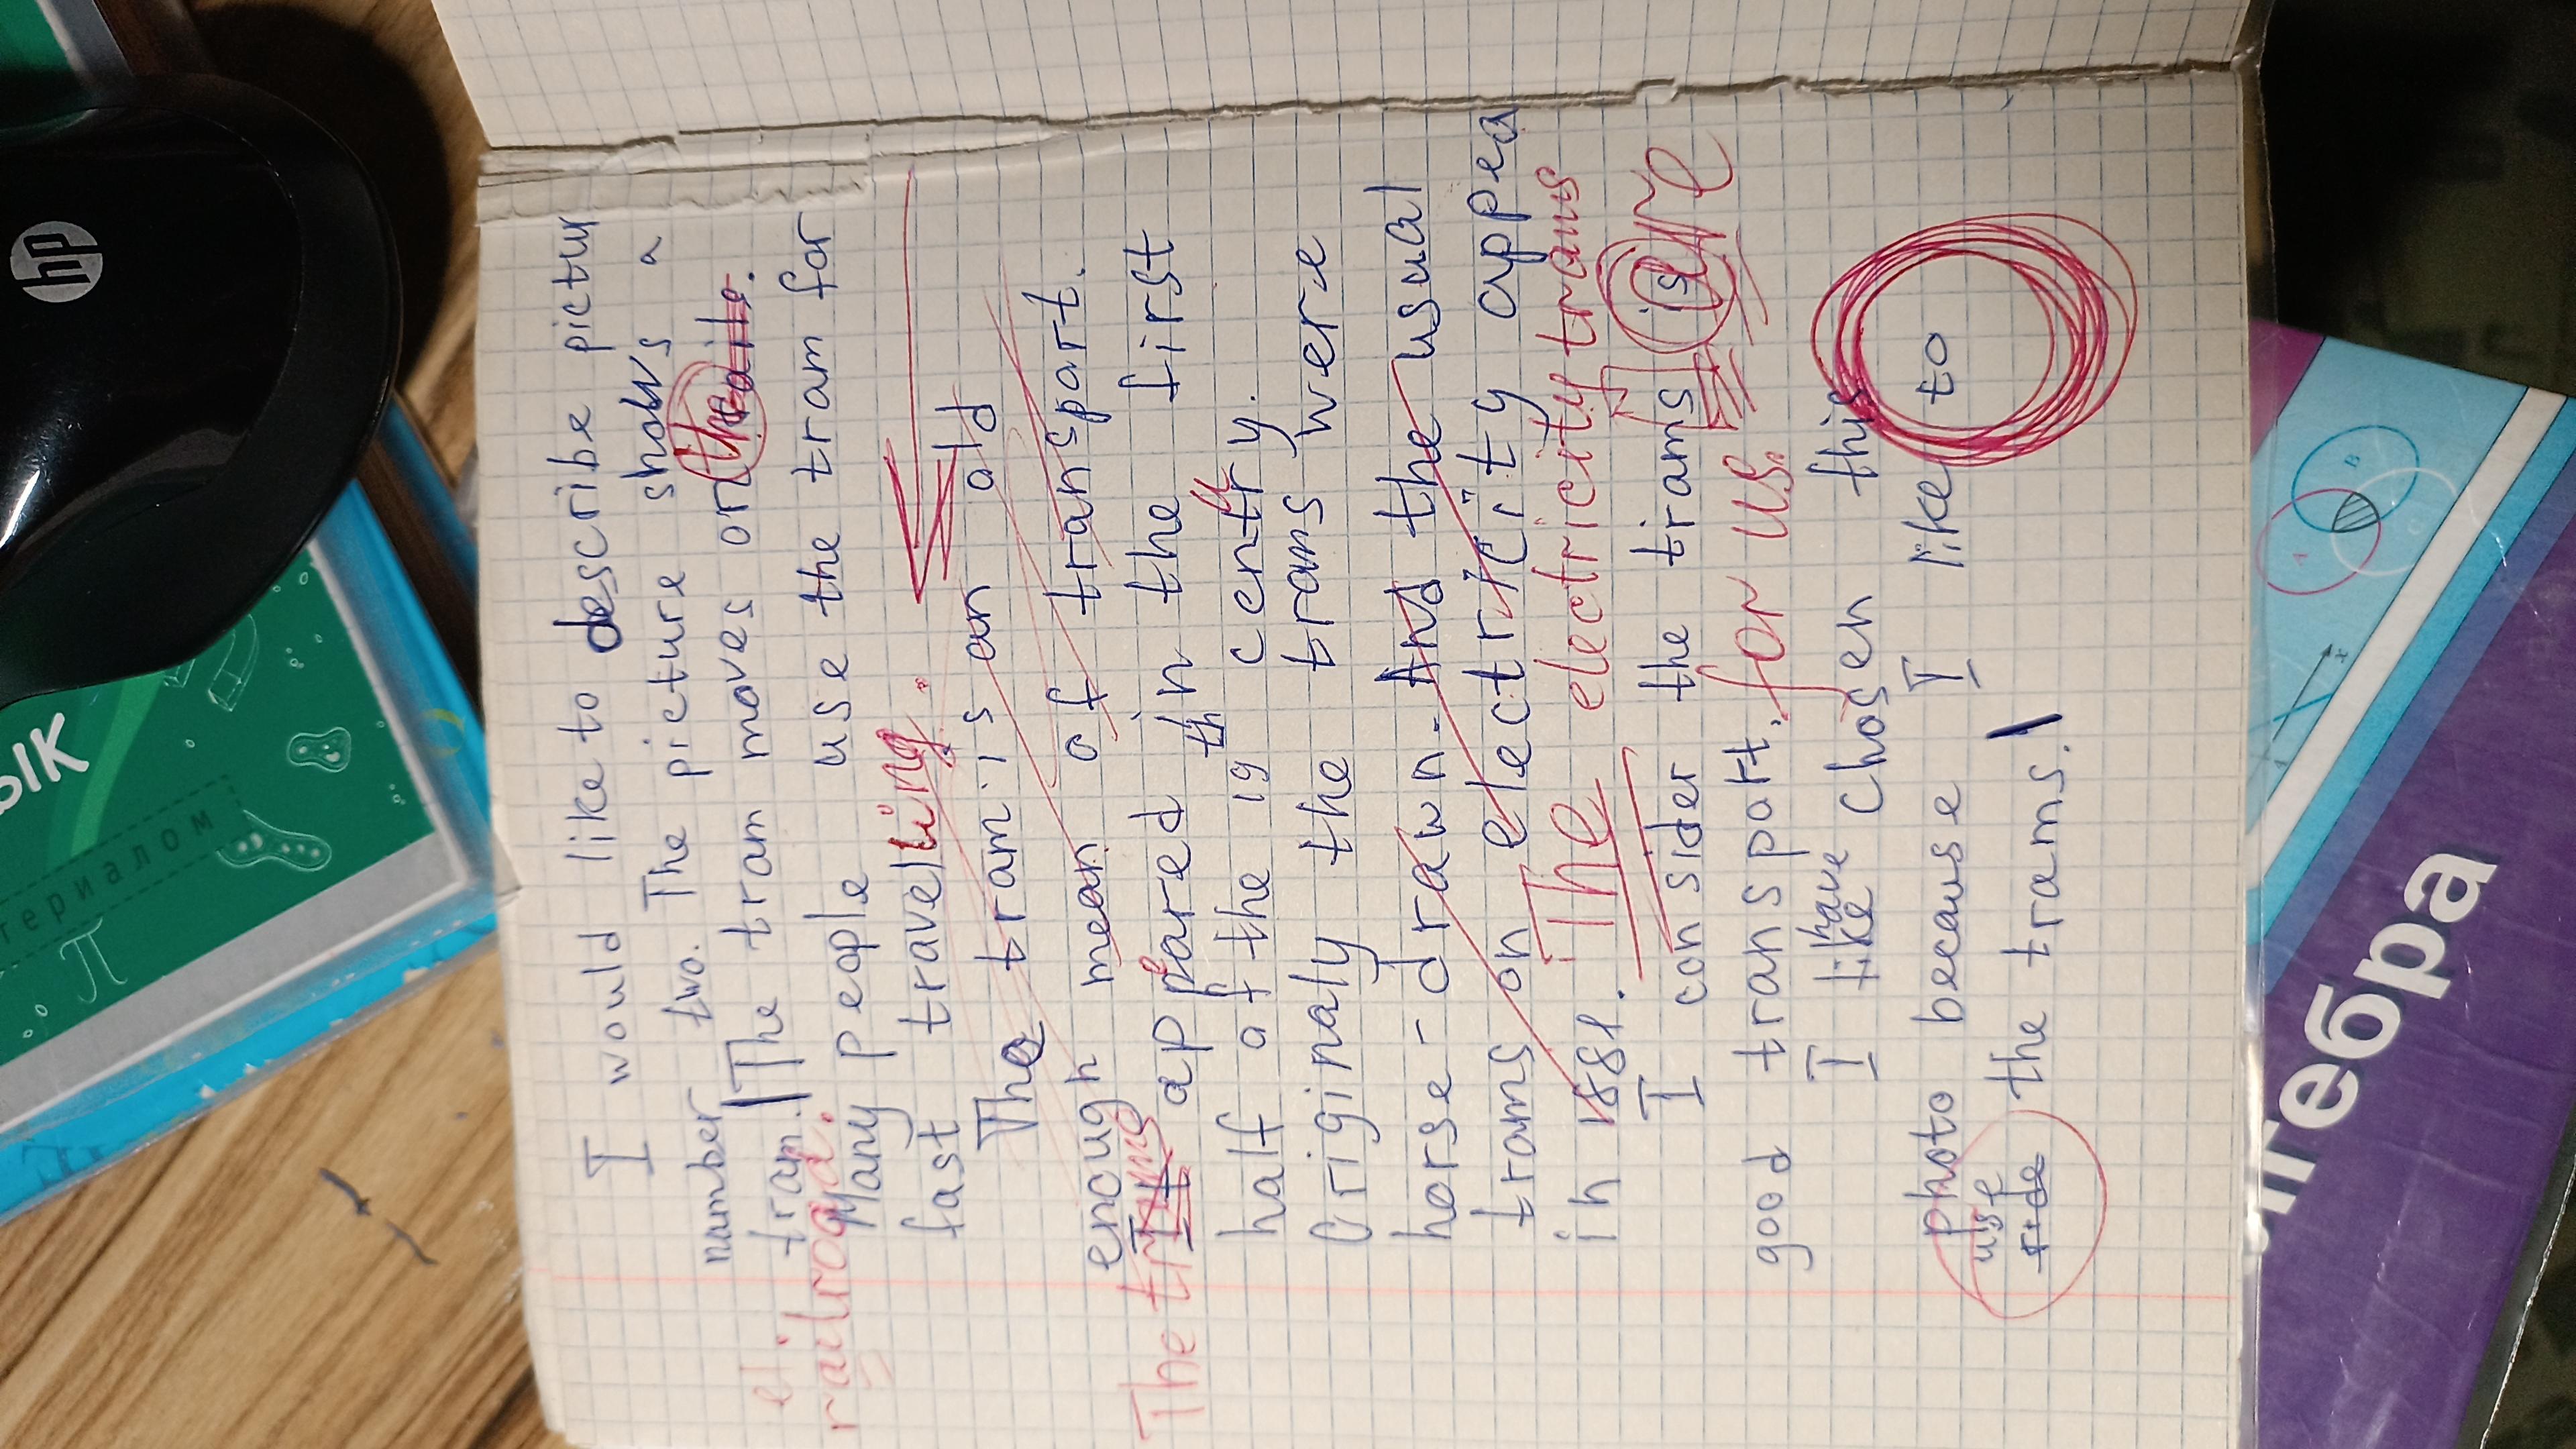 I would like to describe pictur
number two. The picture shows a
tram. The tram moves on the rails.
railroad.
Many people use the tram for
fast travelling.
The tram is an old
enough mean of transport.
The trams
appeared in the first
half of the 19th centry.
u
Originaly the trams were
horse-drawn. And the usual
trams on electricity appea
in 1881. The electricity trams
I consider the trams is are
good transport. for us.
I like have chosen this
photo because I like to
use ride the trams.
hp
ык
териалом
π
лгебра
A
B